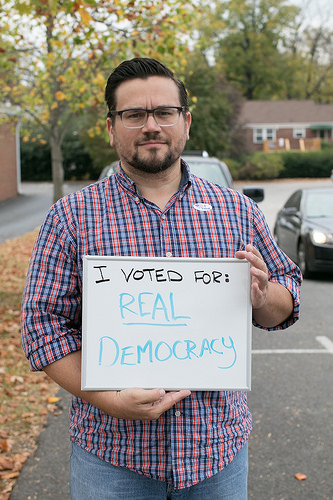 I VOTED FOR:
REAL
DEMOCRACY